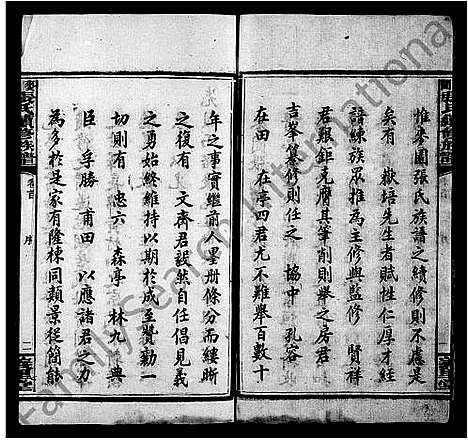 惟參園張氏族譜之續修則不慮是
矣有　嶽培先生者賦性仁厚才經
諳練族眾推為主修與監修　賢祥
君親鉅充膺其筆削則舉之房君
吉峯纂修則任之　協中　孔容
在田　在停四君尤不難舉百數十
年之事實繼前人墨卌條分而縷晰
之復有　文齋君毅然自任倡見義
之勇始終維持以期於成至贊勸一
切則有　惠六　森亭　林九　典
臣　孚勝　甫田　以應諸君之力
為多於是家有隆棟同類景從簡能
卷首
序
二
FamilySearch International